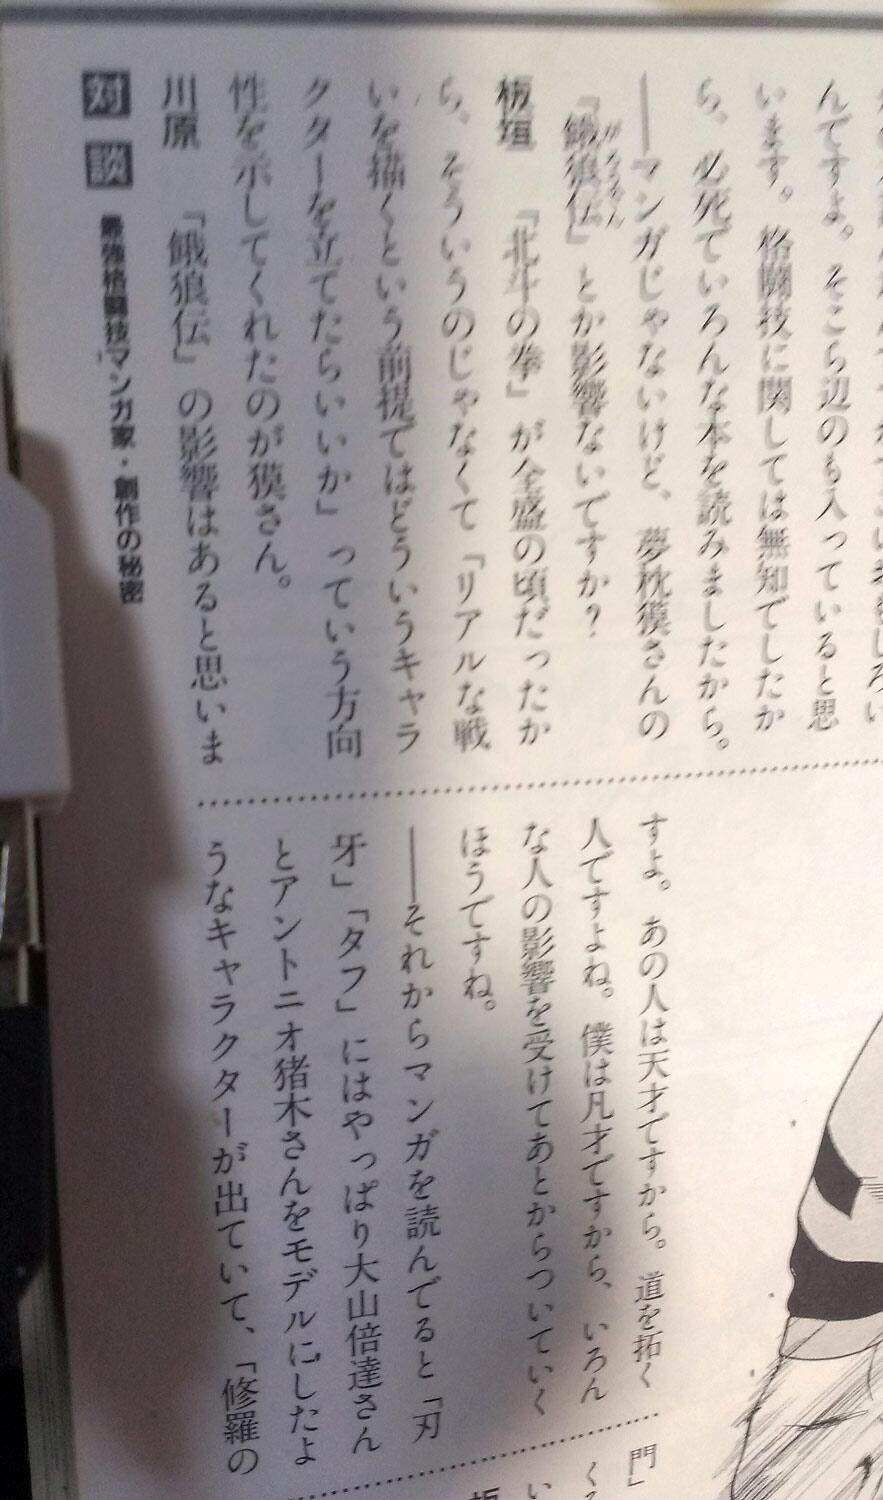 んですよ。そこら辺のも入っていると思
います。格闘技に関しては無知でしたか
ら、必死でいろんな本を読みましたから。
――マンガじゃないけど、夢枕獏さんの
『餓狼伝』とか影響ないですか?
がろうでん
板垣 『北斗の拳』が全盛の頃だったか
ら、そういうのじゃなくて「リアルな戦
いを描くという前提ではどういうキャラ
クターを立てたらいいか」っていう方向
性を示してくれたのが獏さん。
川原 『餓狼伝』の影響はあると思いま
すよ。あの人は天才ですから。道を拓く
人ですよね。僕は凡才ですから、いろん
な人の影響を受けてあとからついていく
ほうですね。
――それからマンガを読んでると『刃
牙』『タフ』にはやっぱり大山倍達さん
とアントニオ猪木さんをモデルにしたよ
うなキャラクターが出ていて、『修羅の
門』
対談
最強格闘技マンガ家・創作の秘密